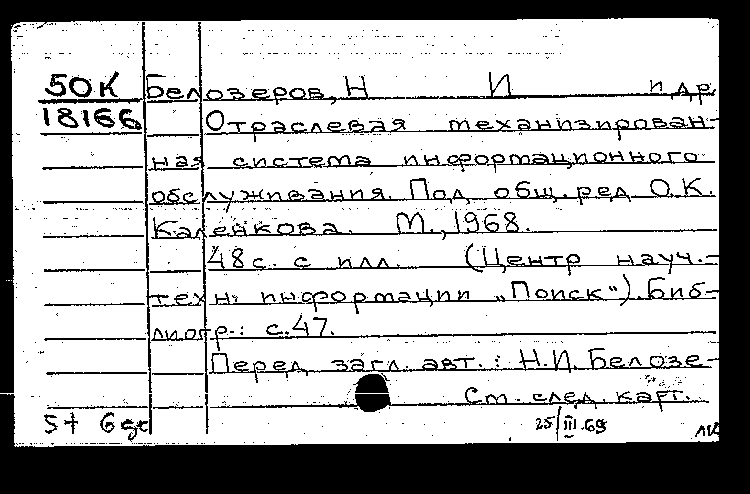 50К Белозеров, Н И и др.
18166 Отраслевая механизирован-
ная система информационного
обслуживания. Под общ. ред О.К.
Каленкова. М., 1968.
48с. с илл. (Центр науч.-
техн. информации „Поиск“). Биб-
лиогр.: с.47.
Перед загл. авт.: Н.И. Белозе-
См. след. карт.
5+ 25/III.69